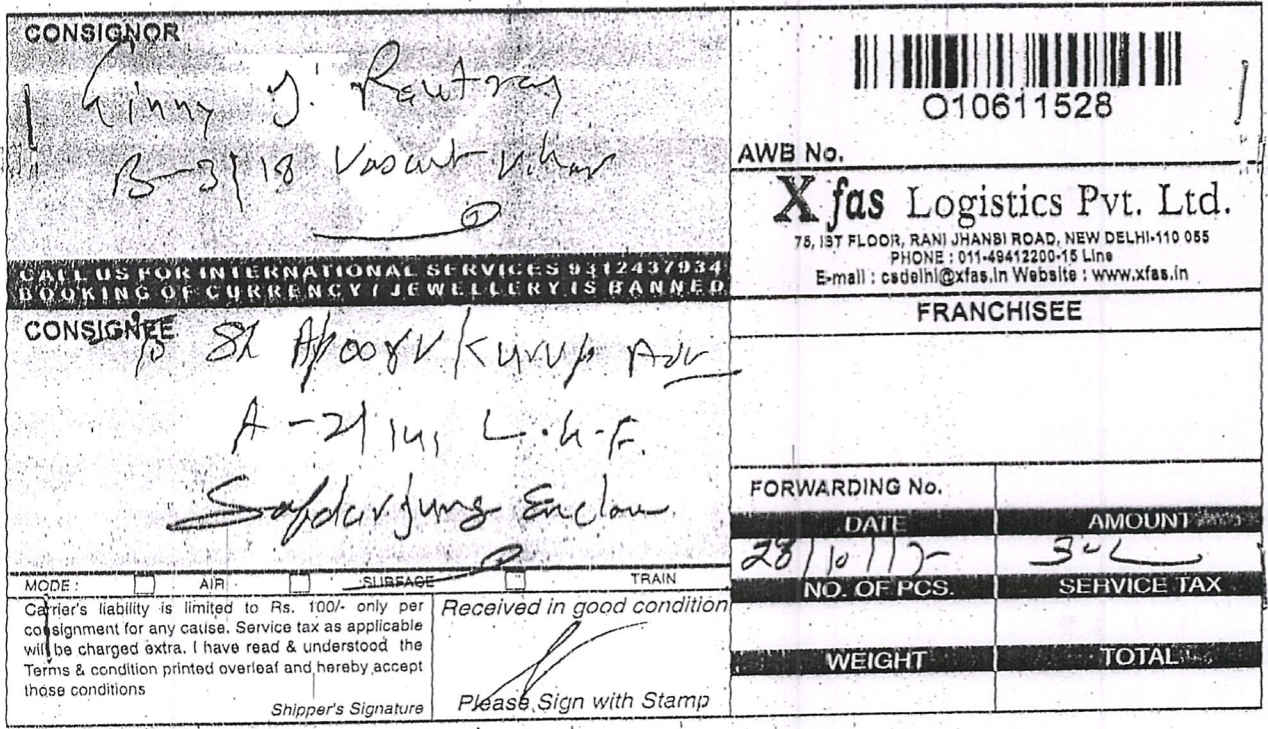 CONSIGNOR
Ginny J. Rautray
B-3/18 Vasant Vihar
CALL US FOR INTERNATIONAL SERVICES 9312437934
BOOKING OF CURRENCY / JEWELLERY IS BANNED
CONSIGNEE
To Sh Apoorv Kurup Adv
A-2/141, L.G.F.
Safdarjung Enclave
MODE : AIR SURFACE TRAIN
Carrier's liability is limited to Rs. 100/- only per
consignment for any cause. Service tax as applicable
will be charged extra. I have read & understood the
Terms & condition printed overleaf and hereby accept
those conditions
Shipper's Signature
Received in good condition
Please Sign with Stamp
O10611528
AWB No.
X fas Logistics Pvt. Ltd.
75, IST FLOOR, RANI JHANSI ROAD, NEW DELHI-110 055
PHONE : 011-49412200-15 Line
E-mail : csdelhi@xfas.in Website : www.xfas.in
FRANCHISEE
FORWARDING No.
DATE AMOUNT
28/10/17
NO. OF PCS. SERVICE TAX
WEIGHT TOTAL